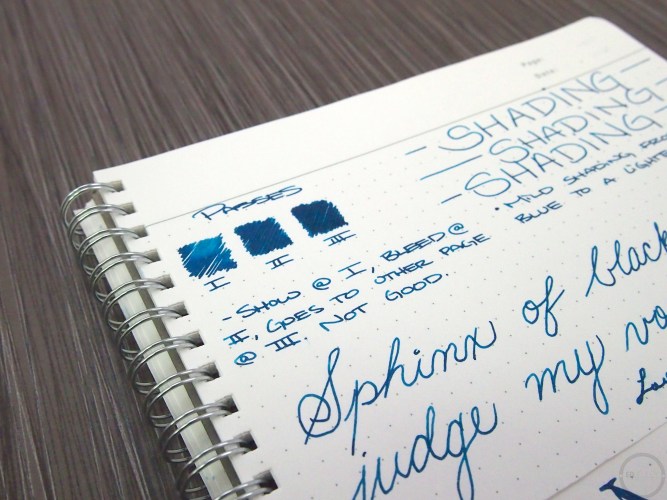 Page:
Date:
- SHADING -
- SHADING
- SHADING -
• MILD SHADING FRO
BLUE TO A LIGHTE
PASSES
I II III
- SHOW @ I, BLEED @
II, GOES TO OTHER PAGE
@ III. NOT GOOD.
Sphinx of black
judge my vo